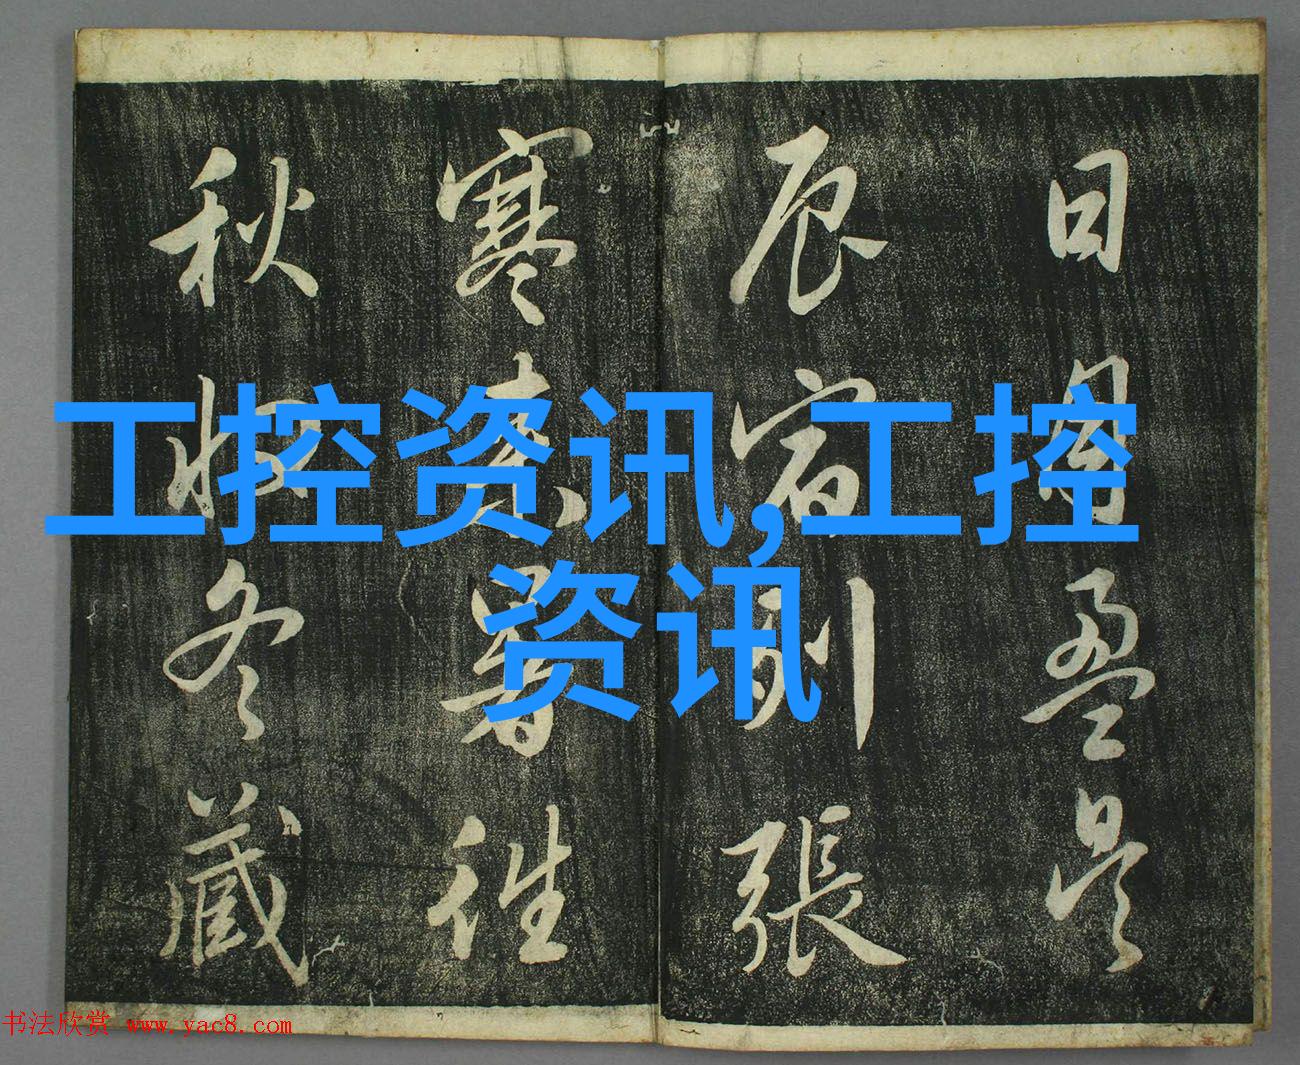 日月盈昃
辰宿列張
寒來暑往
秋收冬藏
工控资讯,工控
资讯
书法欣赏 www.yac8.com